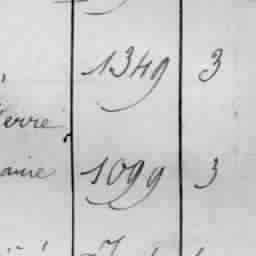 1349 3
erre
aire 1099 3